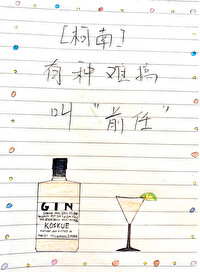 [柯南]
有种难搞
叫"前任"
GIN
KOSKUE